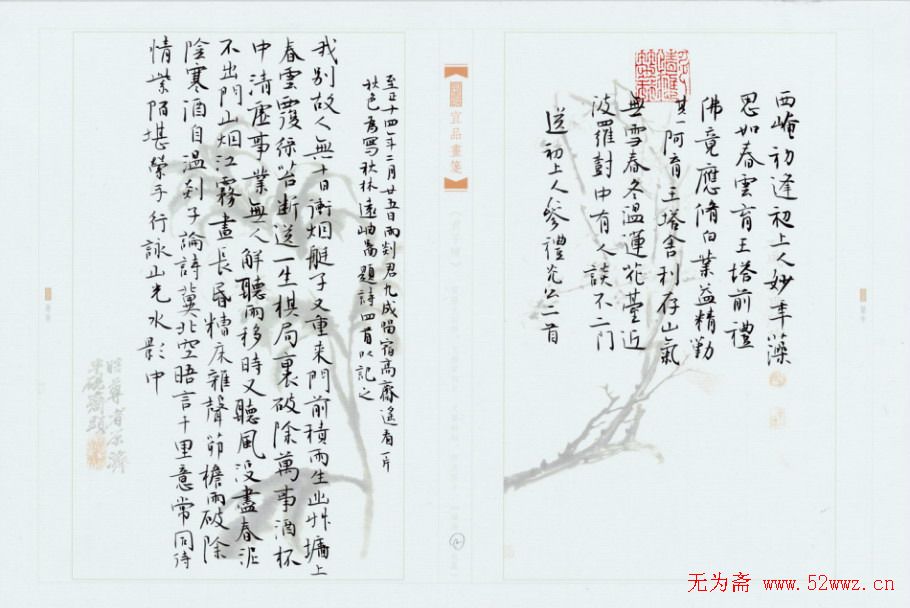 西崦初逢初上人妙年藻
思如春雲育王塔前禮
佛竟應脩白業益精勤
其一阿育王塔舍利存山氣
無雪春冬温蓮花臺近
波羅樹中有人談不二門
送初上人參禮光公二首
宜品畫箋
至正十四年二月廿五日雨剡君九成留宿高齋遙看一片
秋色為寫秋林遠岫啚題詩四首以記之
我別故人無十日衝烟艇子又重來門前積雨生幽艸墻上
春雲覆綠苔斷送一生棋局裏破除萬事酒杯
中清虛事業無人解聽雨移時又聽風沒盡春泥
不出門山烟江霧晝長昏糟床雜聲茆檐雨破除
陰寒酒自溫剡子論詩冀北空晤言千里意常同待
情紫陌堪榮手行詠山光水影中
无为斋 www.52wwz.cn